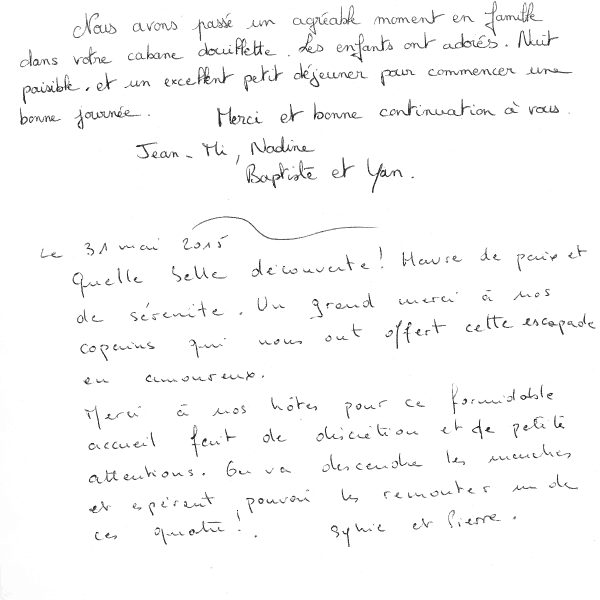 Nous avons passé un agréable moment en famille
dans votre cabane douillette. Les enfants ont adorés. Nuit
paisible, et un excellent petit déjeuner pour commencer une
bonne journée. Merci et bonne continuation à vous.
Jean-Mi, Nadine
Baptiste et Yan.
Le 31 mai 2015
Quelle belle découverte! Havre de paix et
de sérénité. Un grand merci à nos
copains qui nous ont offert cette escapade
en amoureux.
Merci à nos hôtes pour ce formidable
accueil fait de discrétion et de petite
attentions. On va descendre les marches
et espérant pouvoir les remonter un de
ces quatre!. Sylvie et Pierre.